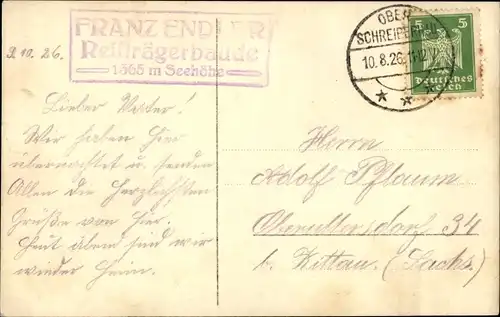 FRANZ ENDLER
Reifträgerbaude
1365 m Seehöhe
OBER
SCHREIBERHAU
10.8.26. 11-12
5 5
Deutsches
Reich
9.10.26.
Lieber Vater!
Wir haben hier
übernachtet u. senden
Allen die herzlichsten
Grüße von hier.
Heut abend sind wir
wieder heim.
Herrn
Adolf Pflaum
Oberullersdorf 34
b. Zittau. (Sachs.)